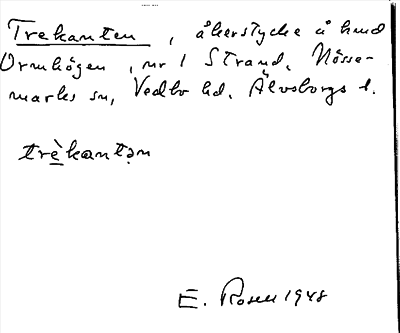 Trekanten, åkerstycke å hmd
Ormhögen, nr 1 Strand, Nösse-
marks sn, Vedbo hd, Älvsborgs l.
trè̱kantən
E. Rosell 1948